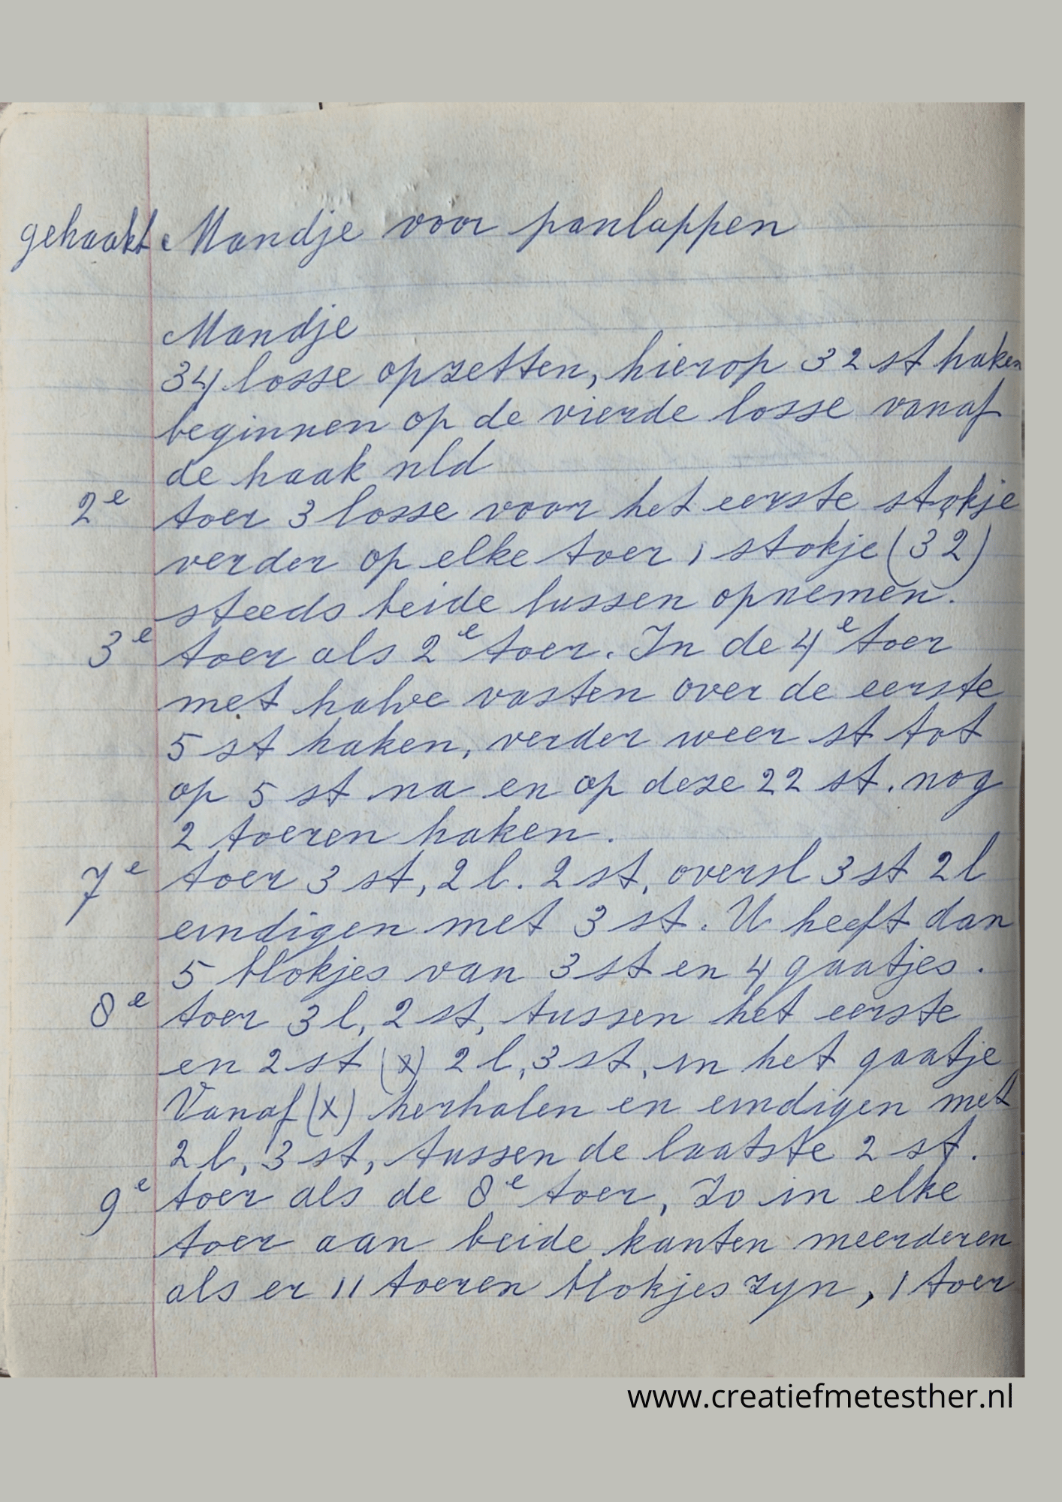 gehaakt Mandje voor panlappen
Mandje
34 losse opzetten, hierop 32 st haken
beginnen op de vierde losse vanaf
de haak nld
2e toer 3 losse voor het eerste stokje
verder op elke toer 1 stokje (32)
steeds beide lussen opnemen.
3e toer als 2e toer. In de 4e toer
met halve vasten over de eerste
5 st haken, verder weer st tot
op 5 st na en op deze 22 st. nog
2 toeren haken.
7e toer 3 st, 2 l. 2 st, oversl 3 st 2 l
eindigen met 3 st. U heeft dan
5 blokjes van 3 st en 4 gaatjes.
8e toer 3 l, 2 st, tussen het eerste
en 2 st (x) 2 l, 3 st, in het gaatje
Vanaf (x) herhalen en eindigen met
2 l, 3 st, tussen de laatste 2 st.
9e toer als de 8e toer, Zo in elke
toer aan beide kanten meerderen
als er 11 toeren blokjes zyn, 1 toer
www.creatiefmetesther.nl